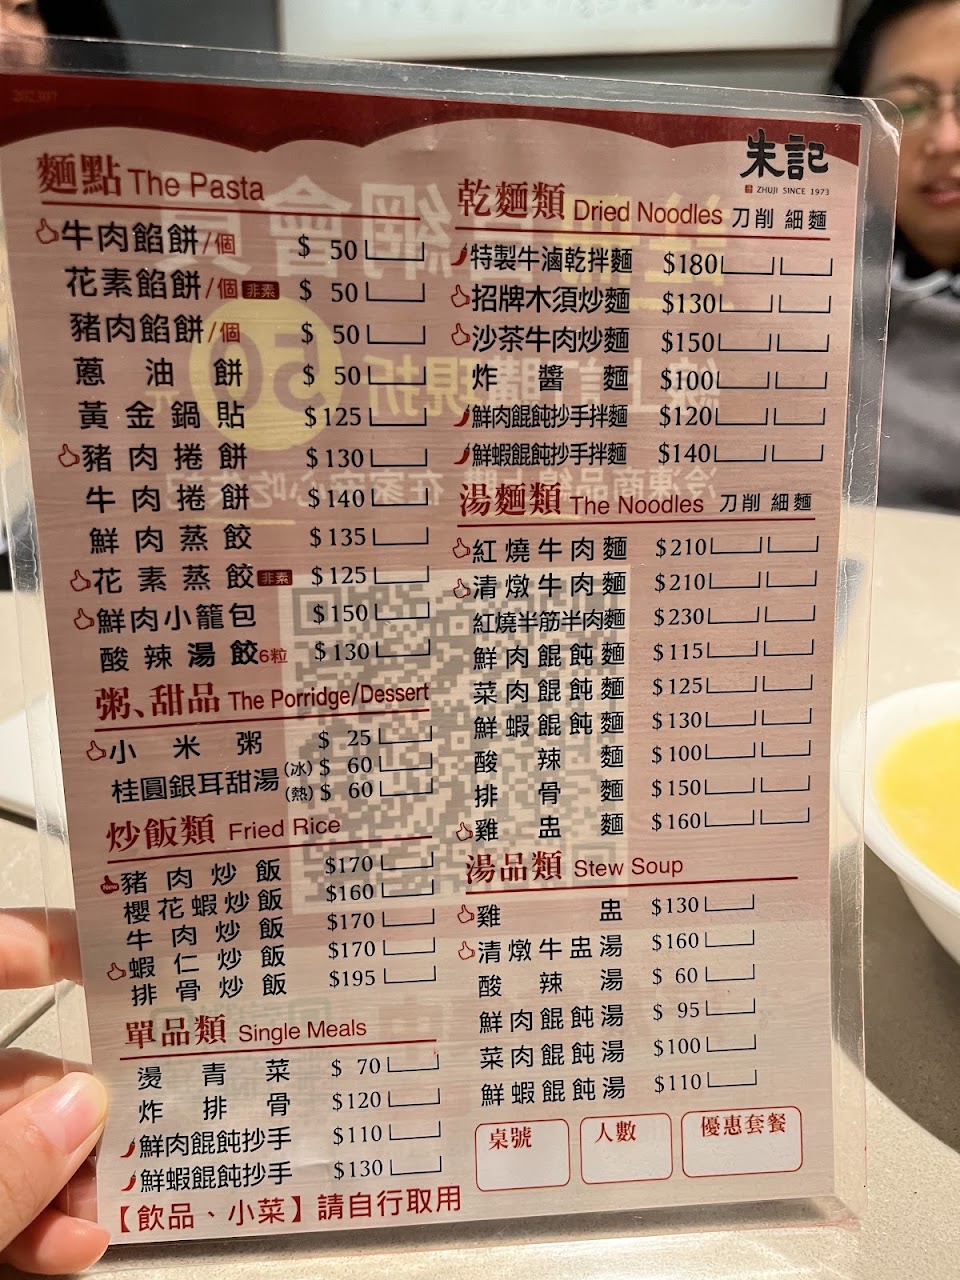 202307
朱記
ZHUJI SINCE 1973
麵點 The Pasta
牛肉餡餅/個 $ 50
花素餡餅/個 非素 $ 50
豬肉餡餅/個 $ 50
蔥油餅 $ 50
黃金鍋貼 $125
豬肉捲餅 $130
牛肉捲餅 $140
鮮肉蒸餃 $135
花素蒸餃 非素 $125
鮮肉小籠包 $150
酸辣湯餃6粒 $130
粥、甜品 The Porridge/Dessert
小米粥 $ 25
桂圓銀耳甜湯 (冰) $ 60
(熱) $ 60
炒飯類 Fried Rice
New 豬肉炒飯 $170
櫻花蝦炒飯 $160
牛肉炒飯 $170
蝦仁炒飯 $170
排骨炒飯 $195
單品類 Single Meals
燙青菜 $ 70
炸排骨 $120
鮮肉餛飩抄手 $110
鮮蝦餛飩抄手 $130
【飲品、小菜】請自行取用
乾麵類 Dried Noodles 刀削 細麵
特製牛滷乾拌麵 $180
招牌木須炒麵 $130
沙茶牛肉炒麵 $150
炸醬麵 $100
鮮肉餛飩抄手拌麵 $120
鮮蝦餛飩抄手拌麵 $140
湯麵類 The Noodles 刀削 細麵
紅燒牛肉麵 $210
清燉牛肉麵 $210
紅燒半筋半肉麵 $230
鮮肉餛飩麵 $115
菜肉餛飩麵 $125
鮮蝦餛飩麵 $130
酸辣麵 $100
排骨麵 $150
雞盅麵 $160
湯品類 Stew Soup
雞盅 $130
清燉牛盅湯 $160
酸辣湯 $ 60
鮮肉餛飩湯 $ 95
菜肉餛飩湯 $100
鮮蝦餛飩湯 $110
桌號
人數
優惠套餐